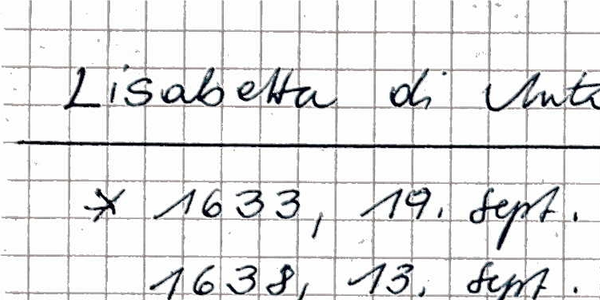 Lisabetta di Anto
* 1633, 19. Sept.
1638, 13. Sept.